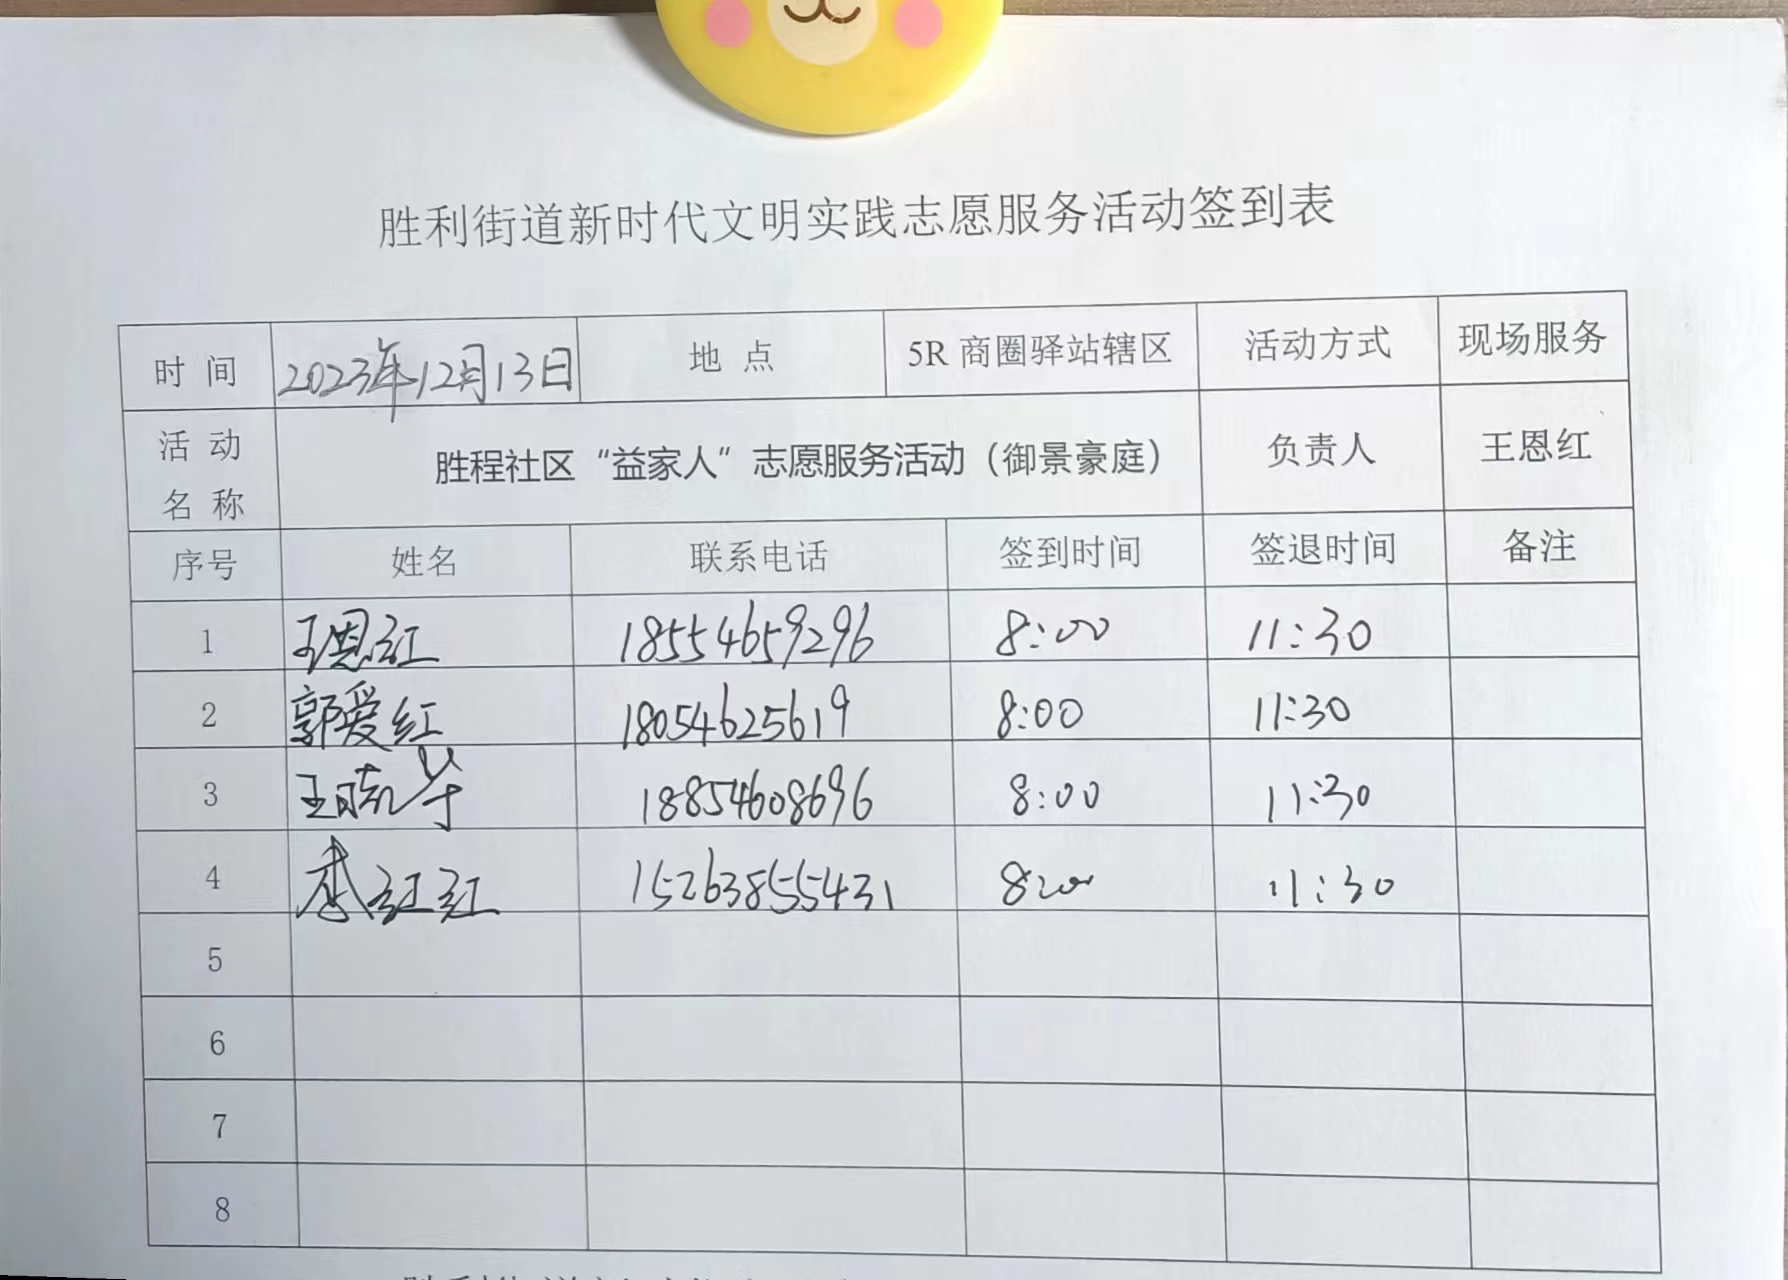 胜利街道新时代文明实践志愿服务活动签到表
时 间 2023年12月13日 地 点 5R 商圈驿站辖区 活动方式 现场服务
活 动 名 称 胜程社区“益家人”志愿服务活动（御景豪庭） 负责人 王恩红
序号 姓名 联系电话 签到时间 签退时间 备注
1 王恩红 18554659296 8:00 11:30
2 郭爱红 18054625619 8:00 11:30
3 王晓华 18854608696 8:00 11:30
4 李红红 15263855431 8:00 11:30
5
6
7
8